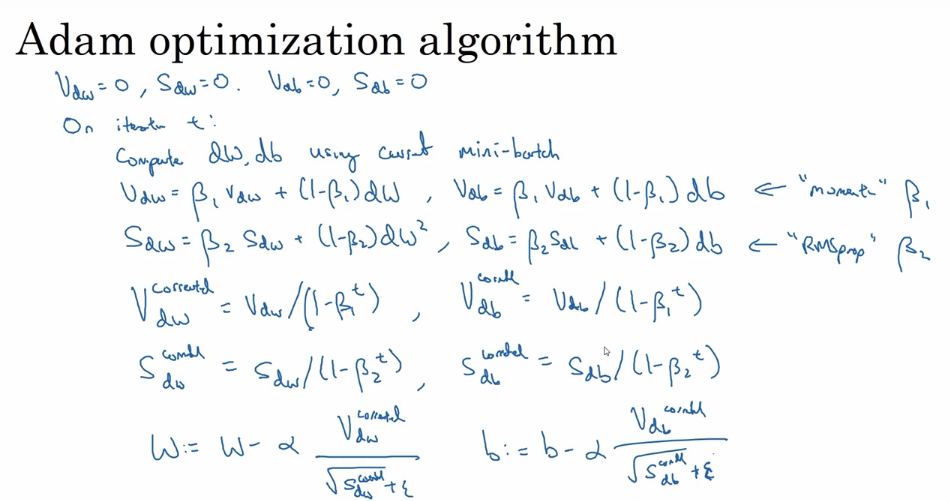 Adam optimization algorithm
V_dw = 0, S_dw = 0. V_db = 0, S_db = 0
On iteratn t:
Compute dW, db using current mini-batch
V_dw = β₁ V_dw + (1-β₁) dW, V_db = β₁ V_db + (1-β₁) db ← "moment" β₁
S_dw = β₂ S_dw + (1-β₂) dW², S_db = β₂ S_db + (1-β₂) db ← "RMSprop" β₂
V_dw^corrected = V_dw/(1-β₁^t), V_db^corrected = V_db/(1-β₁^t)
S_dw^corrected = S_dw/(1-β₂^t), S_db^corrected = S_db/(1-β₂^t)
W := W - α V_dw^corrected / √S_dw^corrected + ε b := b - α V_db^corrected / √S_db^corrected + ε